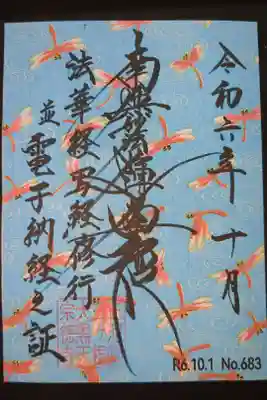 令和六年十月
南無妙法蓮華経
法華経写経修行
並電子納経之証
R6.10.1 No.683